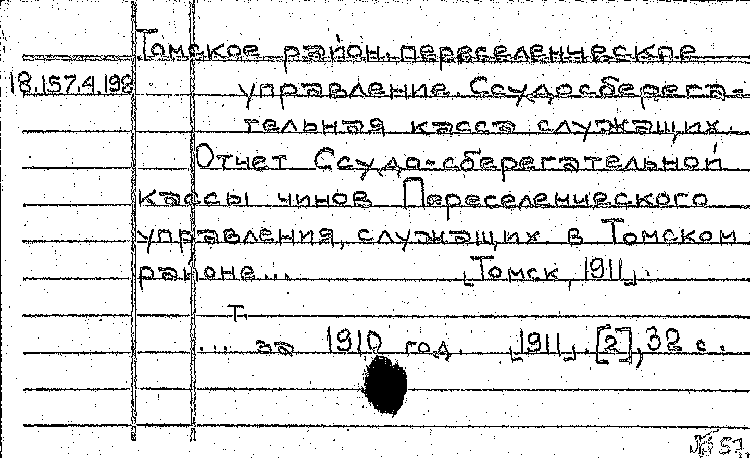 Томское район. переселенческое
18.157.4.198 управление. Ссудосберега-
тельная касса служащих.
Отчет Ссудо-сберегательной
кассы чинов Переселенческого
управления, служащих в Томском
районе... [Томск, 1911].
Т.
... за 1910 год. [1911]. [2], 32 с.
57